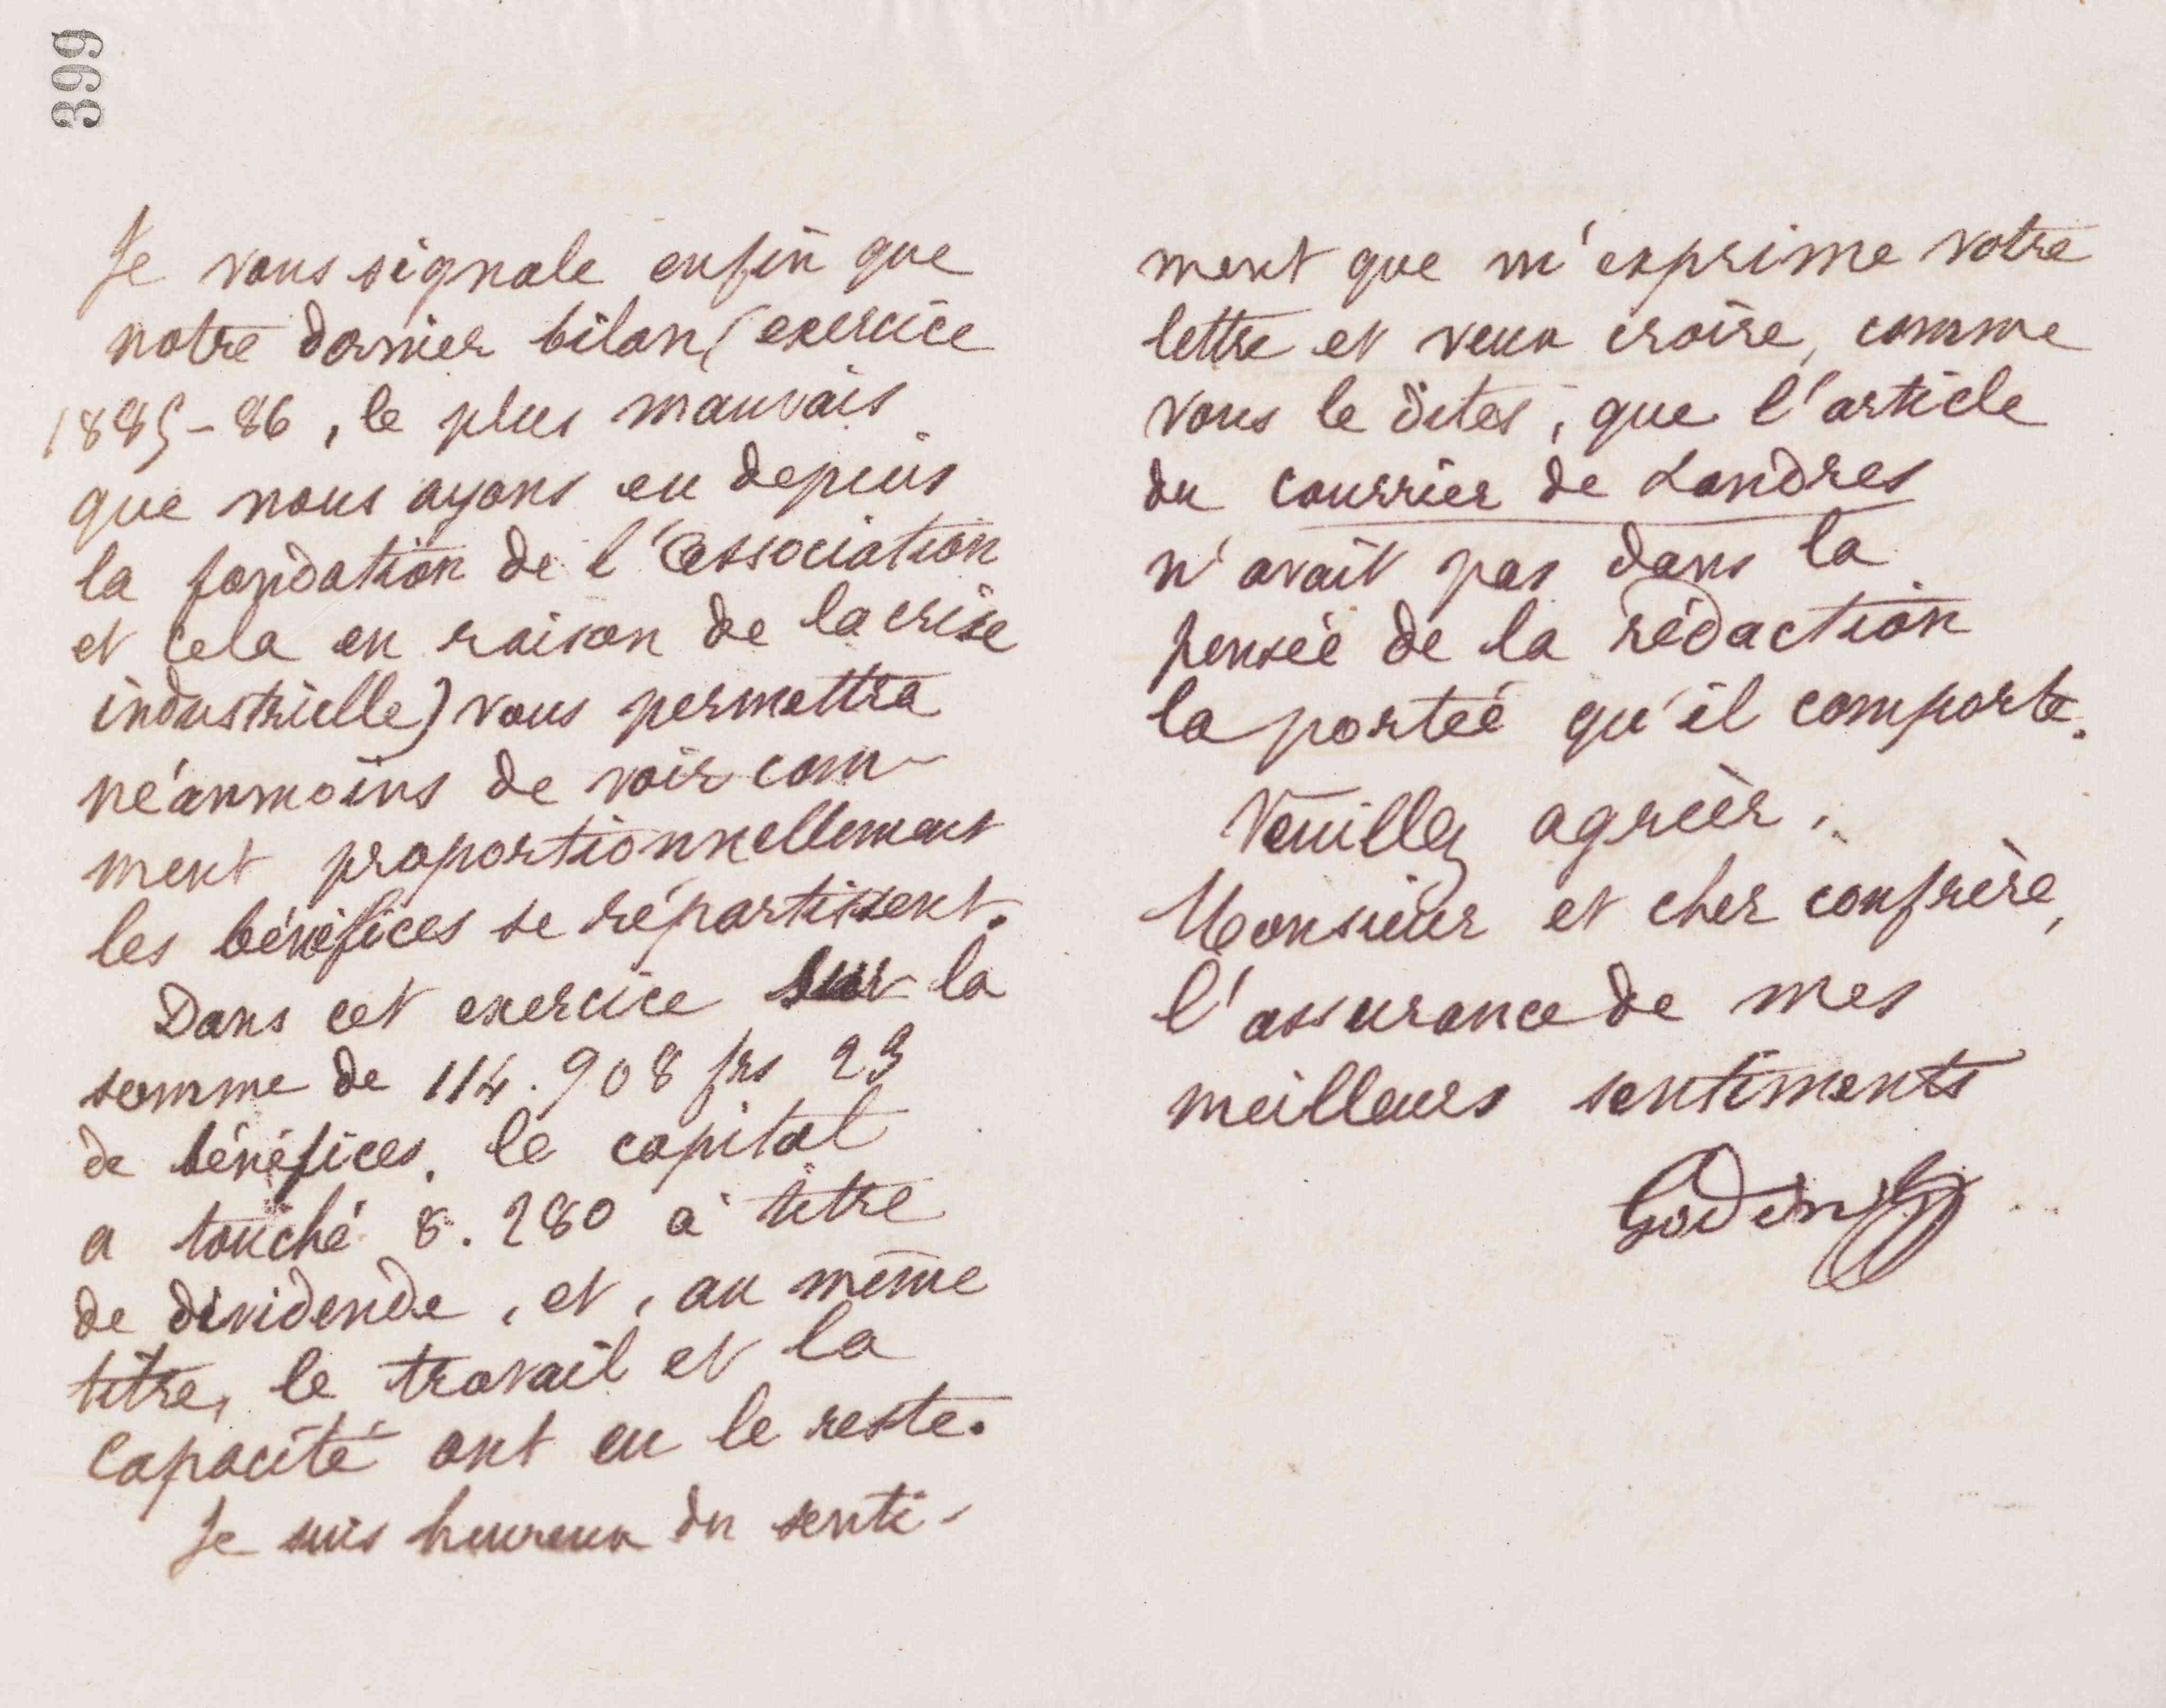 399
Je vous signale enfin que
notre dernier bilan (exercice
1885-86, le plus mauvais
que nous ayons eu depuis
la fondation de l'association
et cela en raison de la crise
industrielle) vous permettra
néanmoins de voir com-
ment proportionnellement
les bénéfices se répartissent.
Dans cet exercice sur la
somme de 114.908 frs 23
de bénéfices, le capital
a touché 8.280 à titre
de dividende, et, au même
titre, le travail et la
capacité ont eu le reste.
Je suis heureux du senti-
ment que m'exprime votre
lettre et veux croire, comme
vous le dites, que l'article
du courrier de Londres
n'avait pas dans la
pensée de la rédaction
la portée qu'il comporte.
Veuillez agréer,
Monsieur et cher confrère,
l'assurance de mes
meilleurs sentiments
Godin